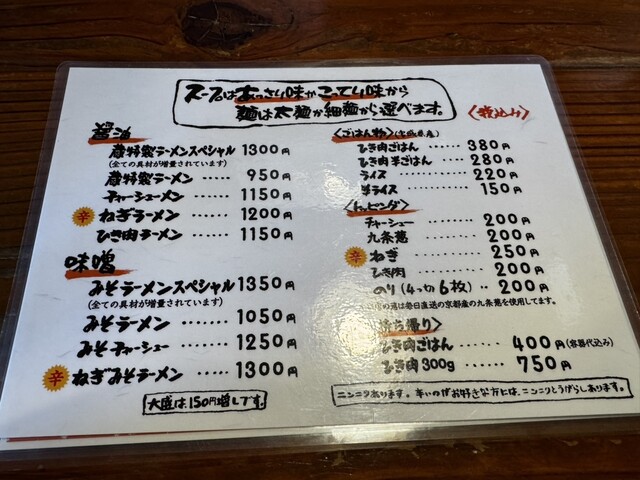 スープはあっさり味かこってり味から
麺は太麺か細麺から選べます。
〈税込み〉
醤油
蔵特製ラーメンスペシャル 1300円
(全ての具材が増量されています)
蔵特製ラーメン ‥‥ 950円
チャーシューメン ‥‥‥ 1150円
辛 ねぎラーメン ‥‥‥ 1200円
ひき肉ラーメン ‥‥‥ 1150円
味噌
みそラーメンスペシャル 1350円
(全ての具材が増量されています)
みそラーメン ‥‥‥ 1050円
みそチャーシュー ‥‥‥ 1250円
辛 ねぎみそラーメン ‥‥‥ 1300円
大盛は150円増しです。
〈ごはん物〉
ひき肉ごはん ‥‥‥ 380円
ひき肉半ごはん ‥‥ 280円
ライス ‥‥‥ 220円
半ライス ‥‥‥ 150円
〈トッピング〉
チャーシュー ‥‥‥ 200円
九条葱 ‥‥‥ 200円
辛 ねぎ ‥‥‥ 250円
ひき肉 ‥‥‥ 200円
のり(4つ切6枚) ‥ 200円
は毎日直送の京都産の九条葱を使用してます。
持ち帰り〉
ひき肉ごはん ‥‥‥ 400円(容器代込み)
ひき肉300g ‥‥‥ 750円
ニンニクあります。辛いのがお好きな方には、ニンニクとうがらしあります。